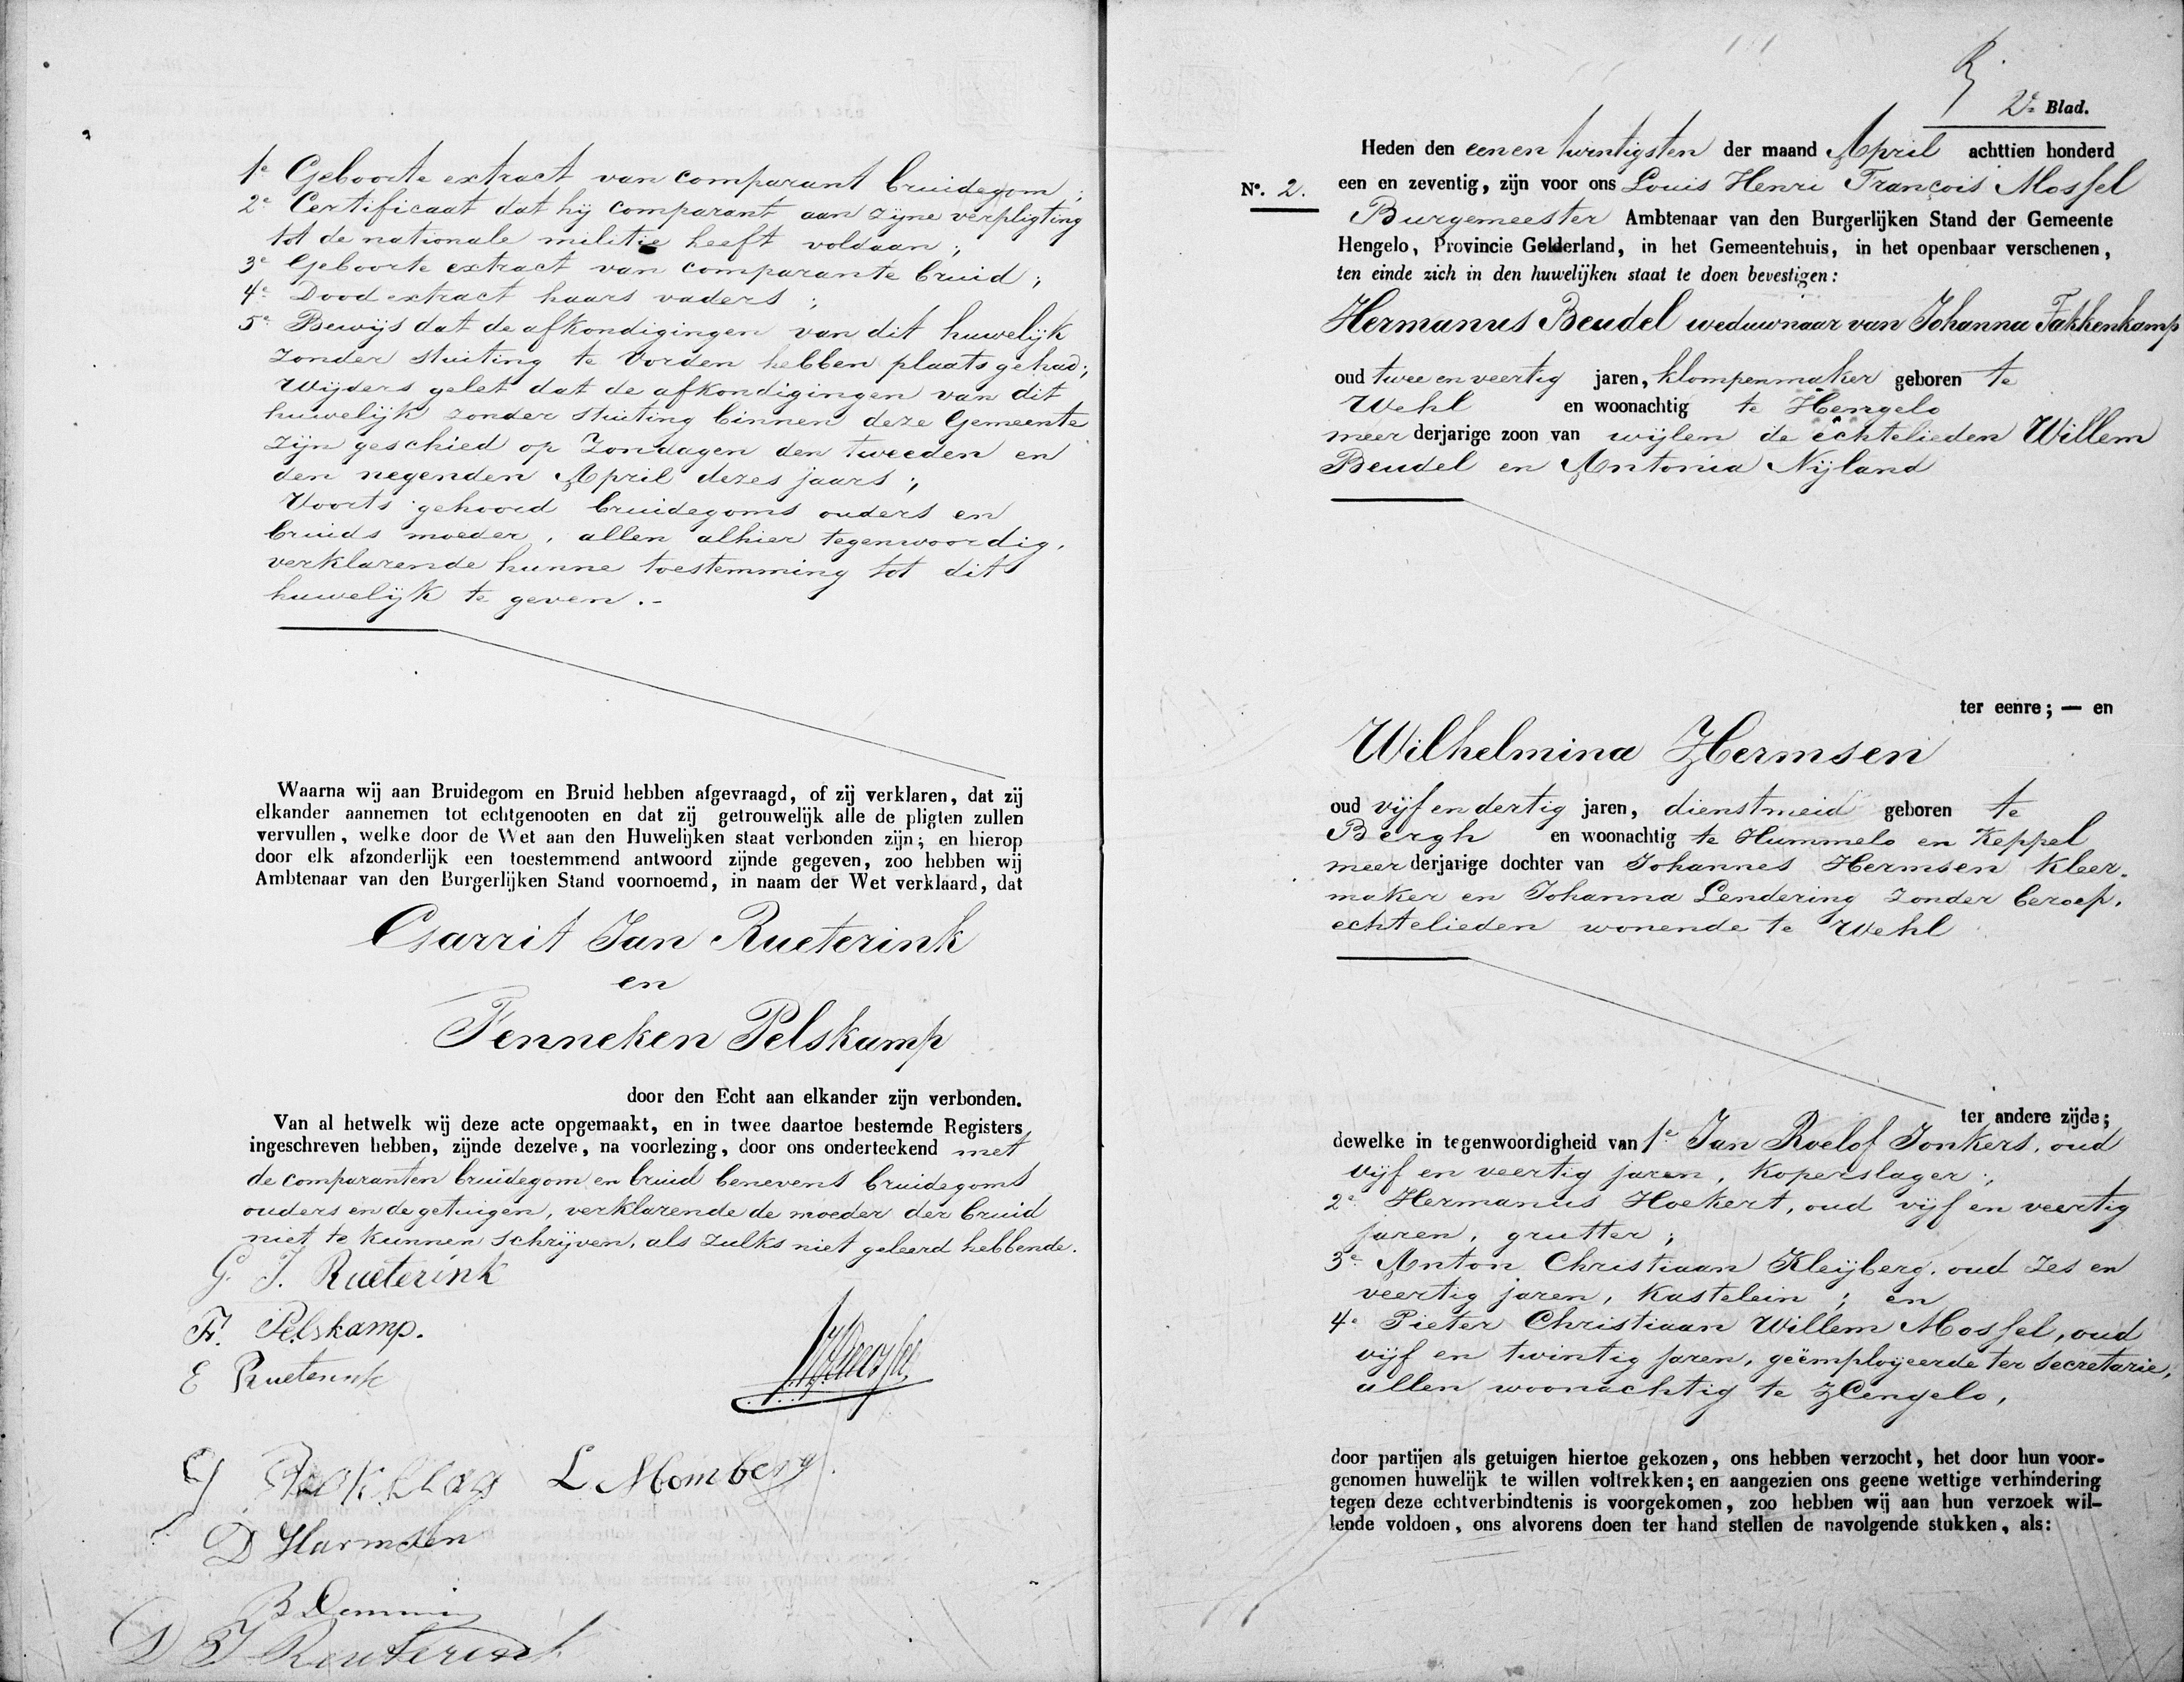 1e Geboorte extract van comparant bruidegom;
2e Certificaat dat hij comparant aan zijne verpligting
tot de nationale militie heeft voldaan;
3e Geboorte extract van comparante bruid;
4e Dood extract haars vaders;
5e Bewijs dat de afkondigingen van dit huwelijk
zonder stuiting te Vorden hebben plaats gehad;
Wijders gelet dat de afkondigingen van dit
huwelijk zonder stuiting binnen deze Gemeente
zijn geschied op Zondagen den tweeden en
den negenden April dezes jaars;
Voorts gehoord bruidegoms ouders en
bruids moeder, allen alhier tegenwoordig,
verklarende hunne toestemming tot dit
huwelijk te geven.-
Waarna wij aan Bruidegom en Bruid hebben afgevraagd, of zij verklaren, dat zij
elkander aannemen tot echtgenooten en dat zij getrouwelijk alle de pligten zullen
vervullen, welke door de Wet aan den Huwelijken staat verbonden zijn; en hierop
door elk afzonderlijk een toestemmend antwoord zijnde gegeven, zoo hebben wij
Ambtenaar van den Burgerlijken Stand voornoemd, in naam der Wet verklaard, dat
Garrit Jan Rueterink
en
Fenneken Pelskamp
door den Echt aan elkander zijn verbonden.
Van al hetwelk wij deze acte opgemaakt, en in twee daartoe bestemde Registers
ingeschreven hebben, zijnde dezelve, na voorlezing, door ons onderteekend met
de comparanten bruidegom en bruid benevens bruidegoms
ouders en de getuigen, verklarende de moeder der bruid
niet te kunnen schrijven, als zulks niet geleerd hebbende.
G. J. Rueterink
F. Pelskamp.
E Rueterink
L Momberg.
D Harmsen
2e Blad.
Heden den eenen twintigsten der maand April achttien honderd
No. 2. een en zeventig, zijn voor ons Louis Henri François Mossel
Burgemeester Ambtenaar van den Burgerlijken Stand der Gemeente
Hengelo, Provincie Gelderland, in het Gemeentehuis, in het openbaar verschenen,
ten einde zich in den huwelijken staat te doen bevestigen:
Hermanus Beudel weduwnaar van Johanna Fakkenkamp
oud twee en veertig jaren, klompenmaker geboren te
Wehl en woonachtig te Hengelo
meer derjarige zoon van wijlen de echtelieden Willem
Beudel en Antonia Nijland
ter eenre; — en
Wilhelmina Hermsen
oud vijf en dertig jaren, dienstmeid geboren te
Bergh en woonachtig te Hummelo en Keppel
meer derjarige dochter van Johannes Hermsen kleer-
maker en Johanna Lendering zonder beroep,
echtelieden wonende te Wehl
ter andere zijde;
dewelke in tegenwoordigheid van 1e Jan Roelof Jonkers, oud
vijf en veertig jaren, koperslager;
2e Hermanus Hoekert, oud vijf en veertig
jaren, grutter;
3e Anton Christiaan Kleijberg, oud zes en
veertig jaren, kastelein; en
4e Pieter Christiaan Willem Mossel, oud
vijf en twintig jaren, geëmploijeerde ter secretarie,
allen woonachtig te Hengelo,
door partijen als getuigen hiertoe gekozen, ons hebben verzocht, het door hun voor-
genomen huwelijk te willen voltrekken; en aangezien ons geene wettige verhindering
tegen deze echtverbindtenis is voorgekomen, zoo hebben wij aan hun verzoek wil-
lende voldoen, ons alvorens doen ter hand stellen de navolgende stukken, als: